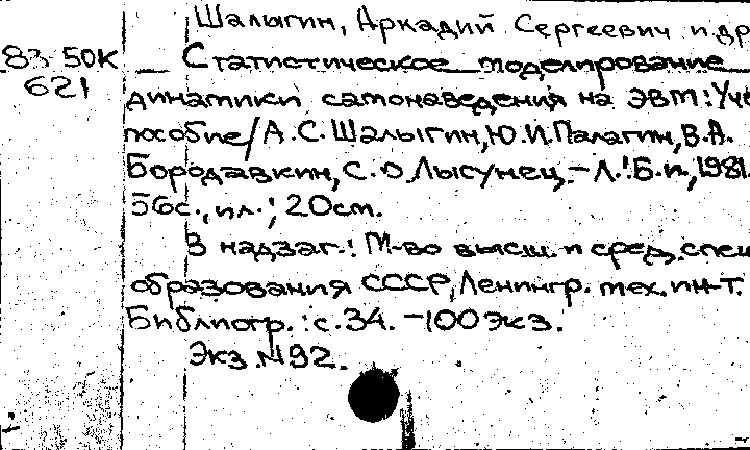 Шалыгин, Аркадий Сергеевич и др
83 50К Статистическое моделирование
621 динамики самонаведения на ЭВМ: Уче
пособие/А.С.Шалыгин,Ю.И.Палагин,В.А.
Бородавкин, С.О.Лысунец,-Л.:Б.и.,1981.
56с.,ил.; 20см.
В надзаг.: М-во высш. и сред. спец
образования СССР, Ленингр. мех. ин-т.
Библиогр.: с.34. -100экз.
Экз.N92.